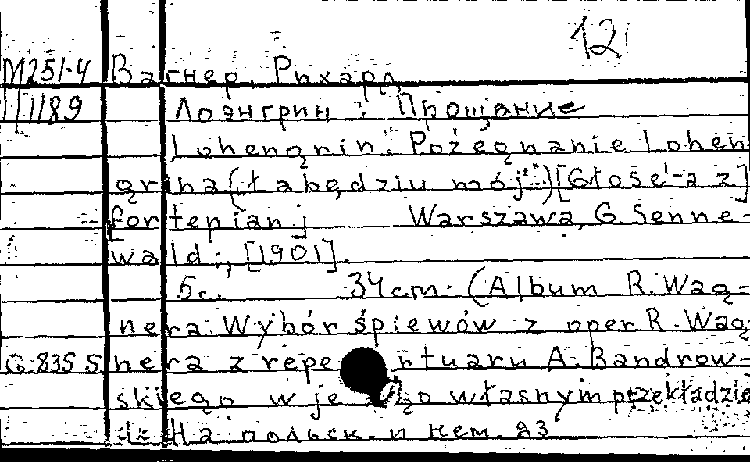 12
М251-4 Вагнер, Рихард
П1189 Лоэнгрин: Прощание
Lohengrin: Pożegnanie Lohen
grina (Łabędziu mój..) [Głos e-a z]
fortepian.] Warszawa, G. Senne-
wald:, [1901].
5 с. 34 cm. (Album R. Wag-
nera. Wybór śpiewów z oper R. Wag
G 835 S nera z repertuaru A. Bandrow-
skiego w jego własnym przekładzie
На польск. и нем. яз